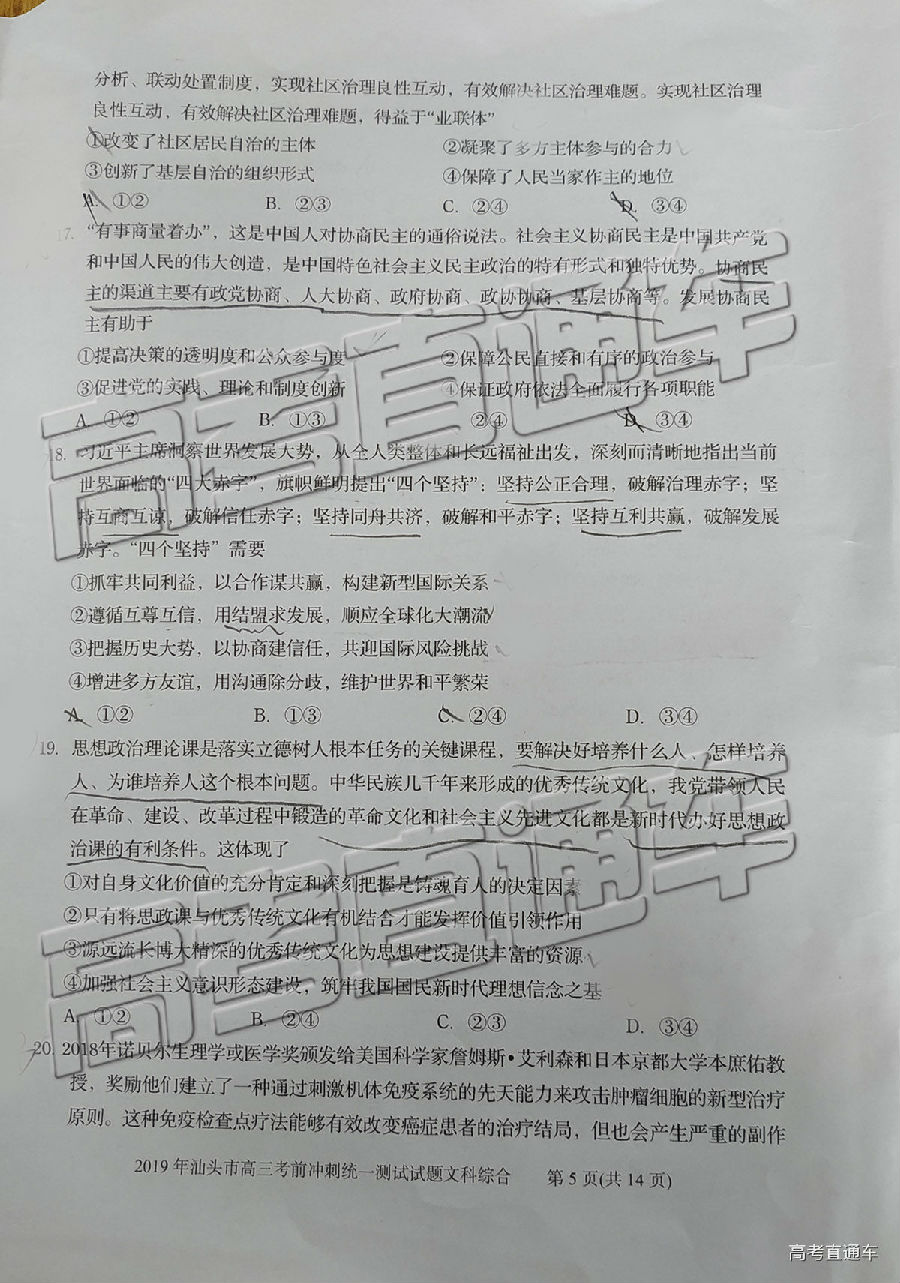 分析、联动处置制度，实现社区治理良性互动，有效解决社区治理难题。实现社区治理
良性互动，有效解决社区治理难题，得益于“业联体”
①改变了社区居民自治的主体 ②凝聚了多方主体参与的合力
③创新了基层自治的组织形式 ④保障了人民当家作主的地位
A. ①② B. ②③ C. ②④ D. ③④
17. “有事商量着办”，这是中国人对协商民主的通俗说法。社会主义协商民主是中国共产党
和中国人民的伟大创造，是中国特色社会主义民主政治的特有形式和独特优势。协商民
主的渠道主要有政党协商、人大协商、政府协商、政协协商、基层协商等。发展协商民
主有助于
①提高决策的透明度和公众参与度 ②保障公民直接和有序的政治参与
③促进党的实践、理论和制度创新 ④保证政府依法全面履行各项职能
A. ①② B. ①③ ②④ D. ③④
18. 习近平主席洞察世界发展大势，从全人类整体和长远福祉出发，深刻而清晰地指出当前
世界面临的“四大赤字”，旗帜鲜明提出“四个坚持”：坚持公正合理，破解治理赤字；坚
持互商互谅，破解信任赤字；坚持同舟共济，破解和平赤字；坚持互利共赢，破解发展
赤字。“四个坚持”需要
①抓牢共同利益，以合作谋共赢，构建新型国际关系
②遵循互尊互信，用结盟求发展，顺应全球化大潮流
③把握历史大势，以协商建信任，共迎国际风险挑战
④增进多方友谊，用沟通除分歧，维护世界和平繁荣
A. ①② B. ①③ C. ②④ D. ③④
19. 思想政治理论课是落实立德树人根本任务的关键课程，要解决好培养什么人、怎样培养
人、为谁培养人这个根本问题。中华民族几千年来形成的优秀传统文化，我党带领人民
在革命、建设、改革过程中锻造的革命文化和社会主义先进文化都是新时代办好思想政
治课的有利条件。这体现了
①对自身文化价值的充分肯定和深刻把握是铸魂育人的决定因素
②只有将思政课与优秀传统文化有机结合才能发挥价值引领作用
③源远流长博大精深的优秀传统文化为思想建设提供丰富的资源
④加强社会主义意识形态建设，筑牢我国国民新时代理想信念之基
A. ①② B. ②④ C. ②③ D. ③④
20. 2018年诺贝尔生理学或医学奖颁发给美国科学家詹姆斯·艾利森和日本京都大学本庶佑教
授，奖励他们建立了一种通过刺激机体免疫系统的先天能力来攻击肿瘤细胞的新型治疗
原则。这种免疫检查点疗法能够有效改变癌症患者的治疗结局，但也会产生严重的副作
2019年汕头市高三考前冲刺统一测试试题文科综合 第5页(共14页)
高考直通车
高考直通车
高考直通车